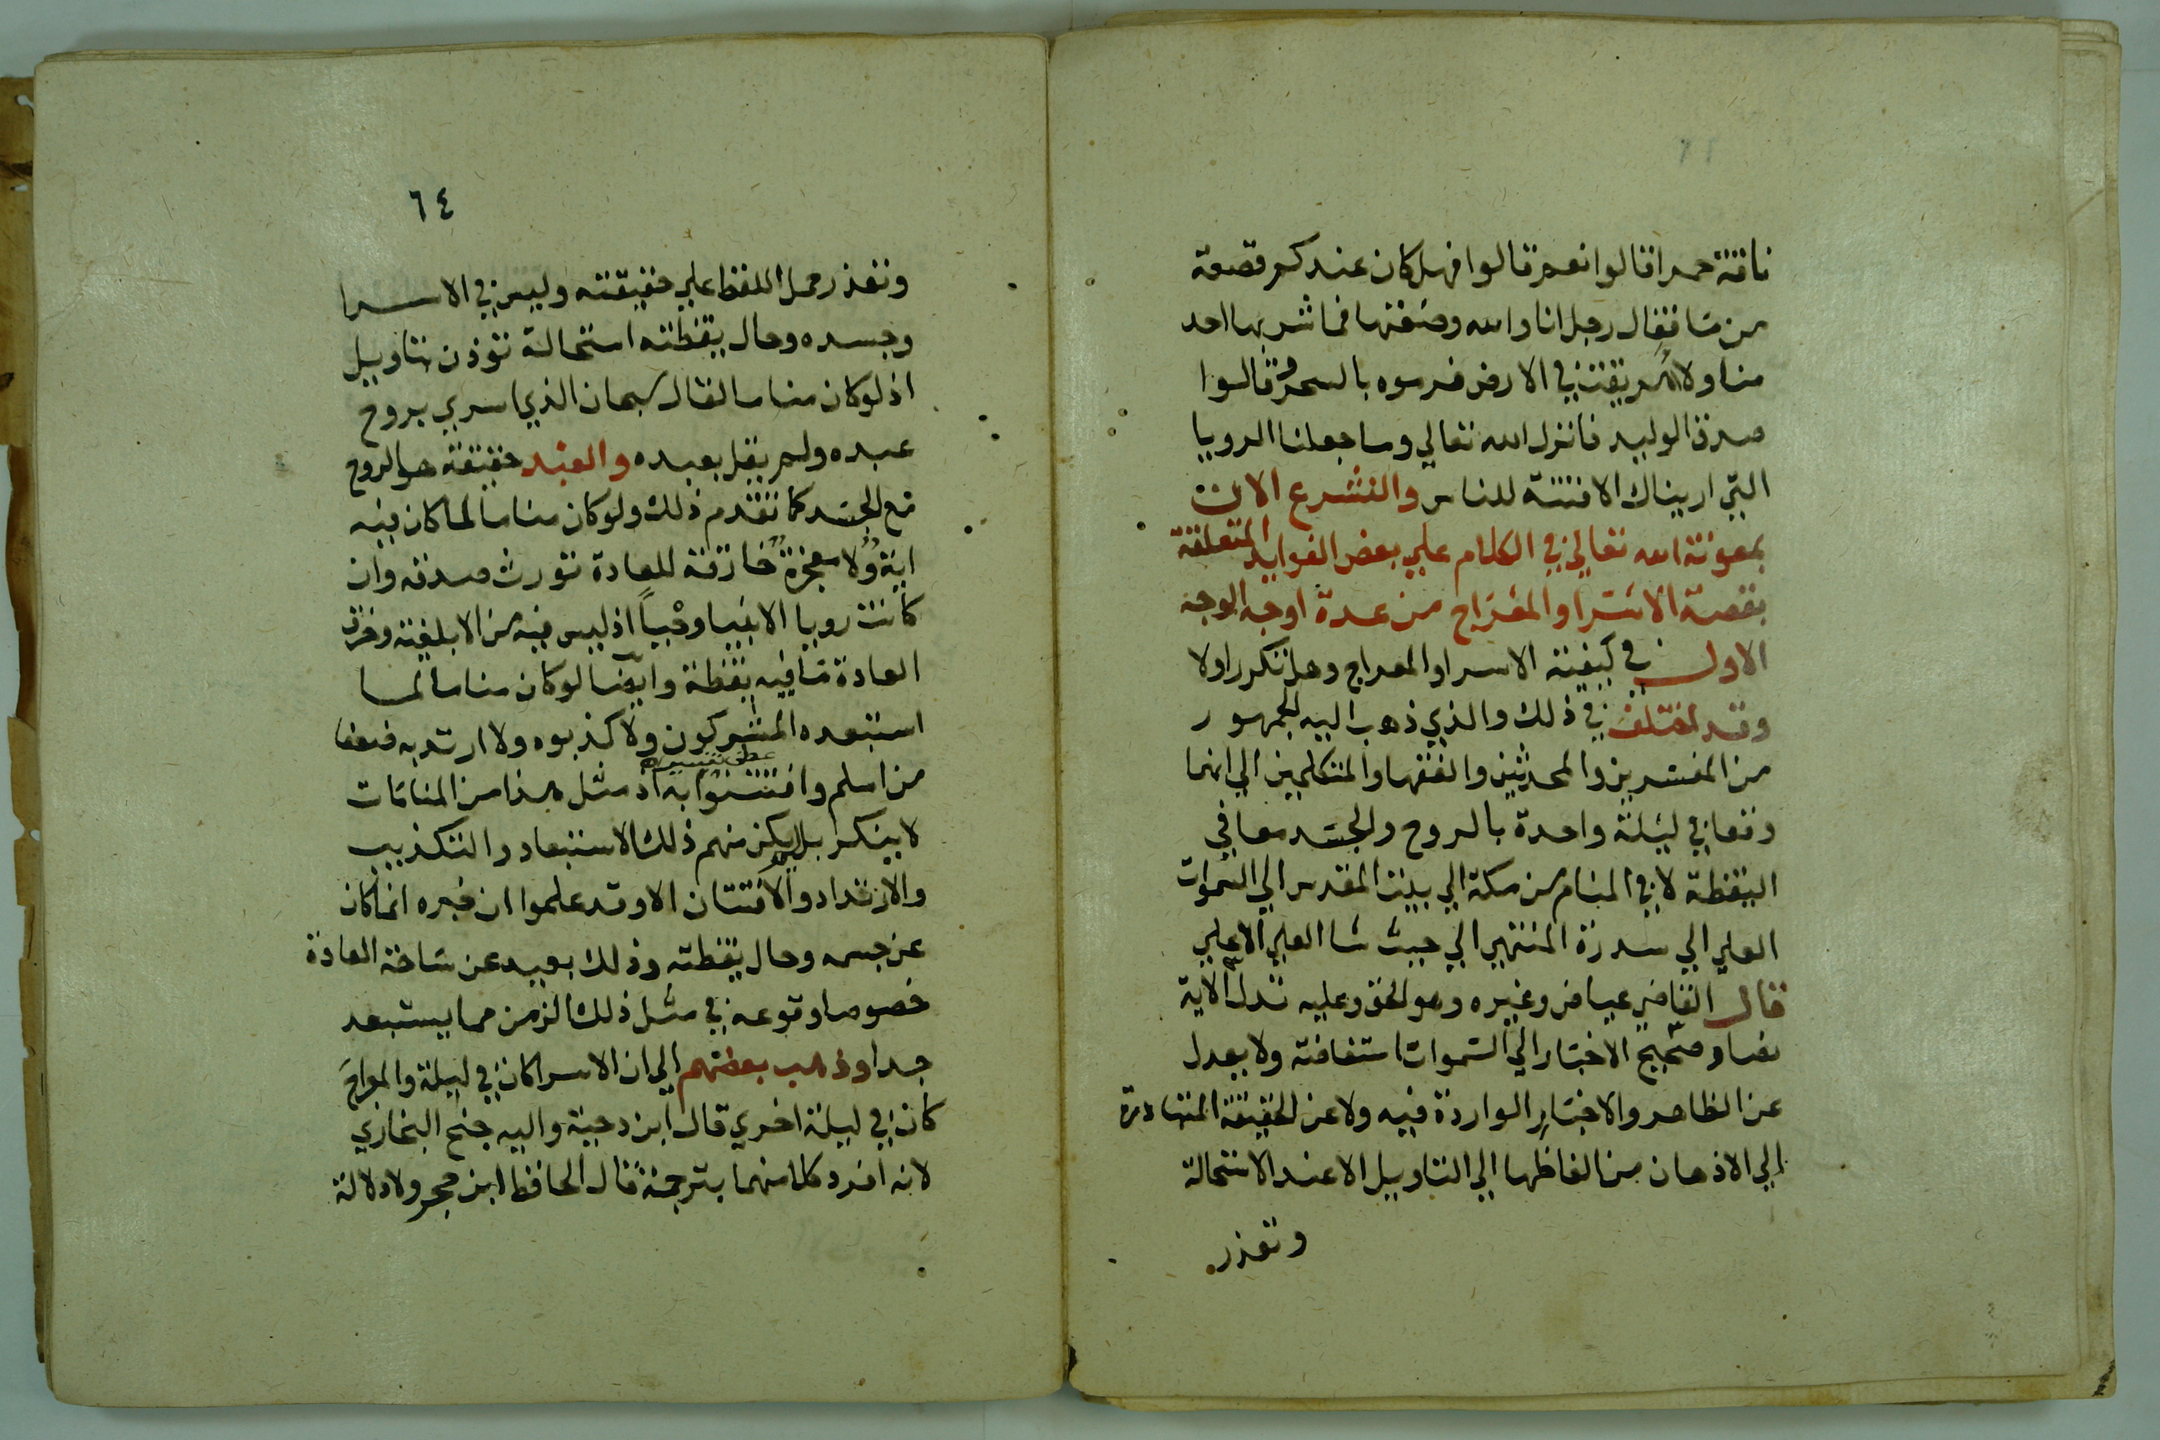 ناقة حمرا قالوا نعم قالوا فهل كان عندكم قصعة
من ما فقال رجل انا والله وضعتها فما شربها احد
منا ولا اهريقت في الارض فرموه بالسحر وقالوا
صدق الوليد فانزل الله تعالي وما جعلنا الرويا
التي اريناك الا فتنة للناس ولنشرع الان
بمعونة الله تعالي في الكلام علي بعض الفوايد المتعلقة
بقصة الاسرا والمعراج من عدة اوجه الوجه
الاول في كيفية الاسرا والمعراج وهل تكرر اولا
وقد اختلف في ذلك والذي ذهب اليه الجمهور
من المفسرين والمحدثين والفقها والمتكلمين الي انهما
وقعا في ليلة واحدة بالروح والجسد معا في
اليقظة لا في المنام من مكة الي بيت المقدس الي السموات
العلي الي سدرة المنتهي الي حيث شا العلي الاعلي
قال القاضي عياض وغيره وهو الحق وعليه تدل الاية
نصا وصحيح الاخبار الي السموات استفاضة ولا يعدل
عن الظاهر والاخبار الواردة فيه ولا عن الحقيقة المتبادرة
الي الاذهان من الفاظها الي التاويل الا عند الاستحالة
وتعذر
٦٤
وتعذر حمل اللفظ علي حقيقته وليس في الاسرا
وجسده وحال يقظته استحالة توذن بتاويل
اذ لو كان مناما لقال سبحان الذي اسري بروح
عبده ولم يقل بعبده والعبد حقيقة هو الروح
مع الجسد كما تقدم ذلك ولو كان مناما لما كان فيه
اية ولا معجزة خارقة للعادة تورث صدقه وان
كانت رويا الانبيا وحيا اذ ليس فيه من الابلغية وخرق
العادة ما فيه يقظة وايضا لو كان مناما لما
استبعده المشركون ولا كذبوه ولا ارتد به ضعفا
عطف تفسير
من اسلم وافتتنوا به اذ مثل هذا من المنامات
لا ينكر بل لم يكن منهم ذلك الاستبعاد والتكذيب
والارتداد والافتتان الا وقد علموا ان خبره انما كان
عن جسمه وحال يقظته وذلك بعيد عن ساحة العادة
خصوصا وقوعه في مثل ذلك الزمن مما يستبعد
جدا وذهب بعضهم الي ان الاسرا كان في ليلة والمعراج
كان في ليلة اخري قال ابن دحية واليه جنح البخاري
لانه افرد كلا منهما بترجمة قال الحافظ ابن حجر ولا دلالة